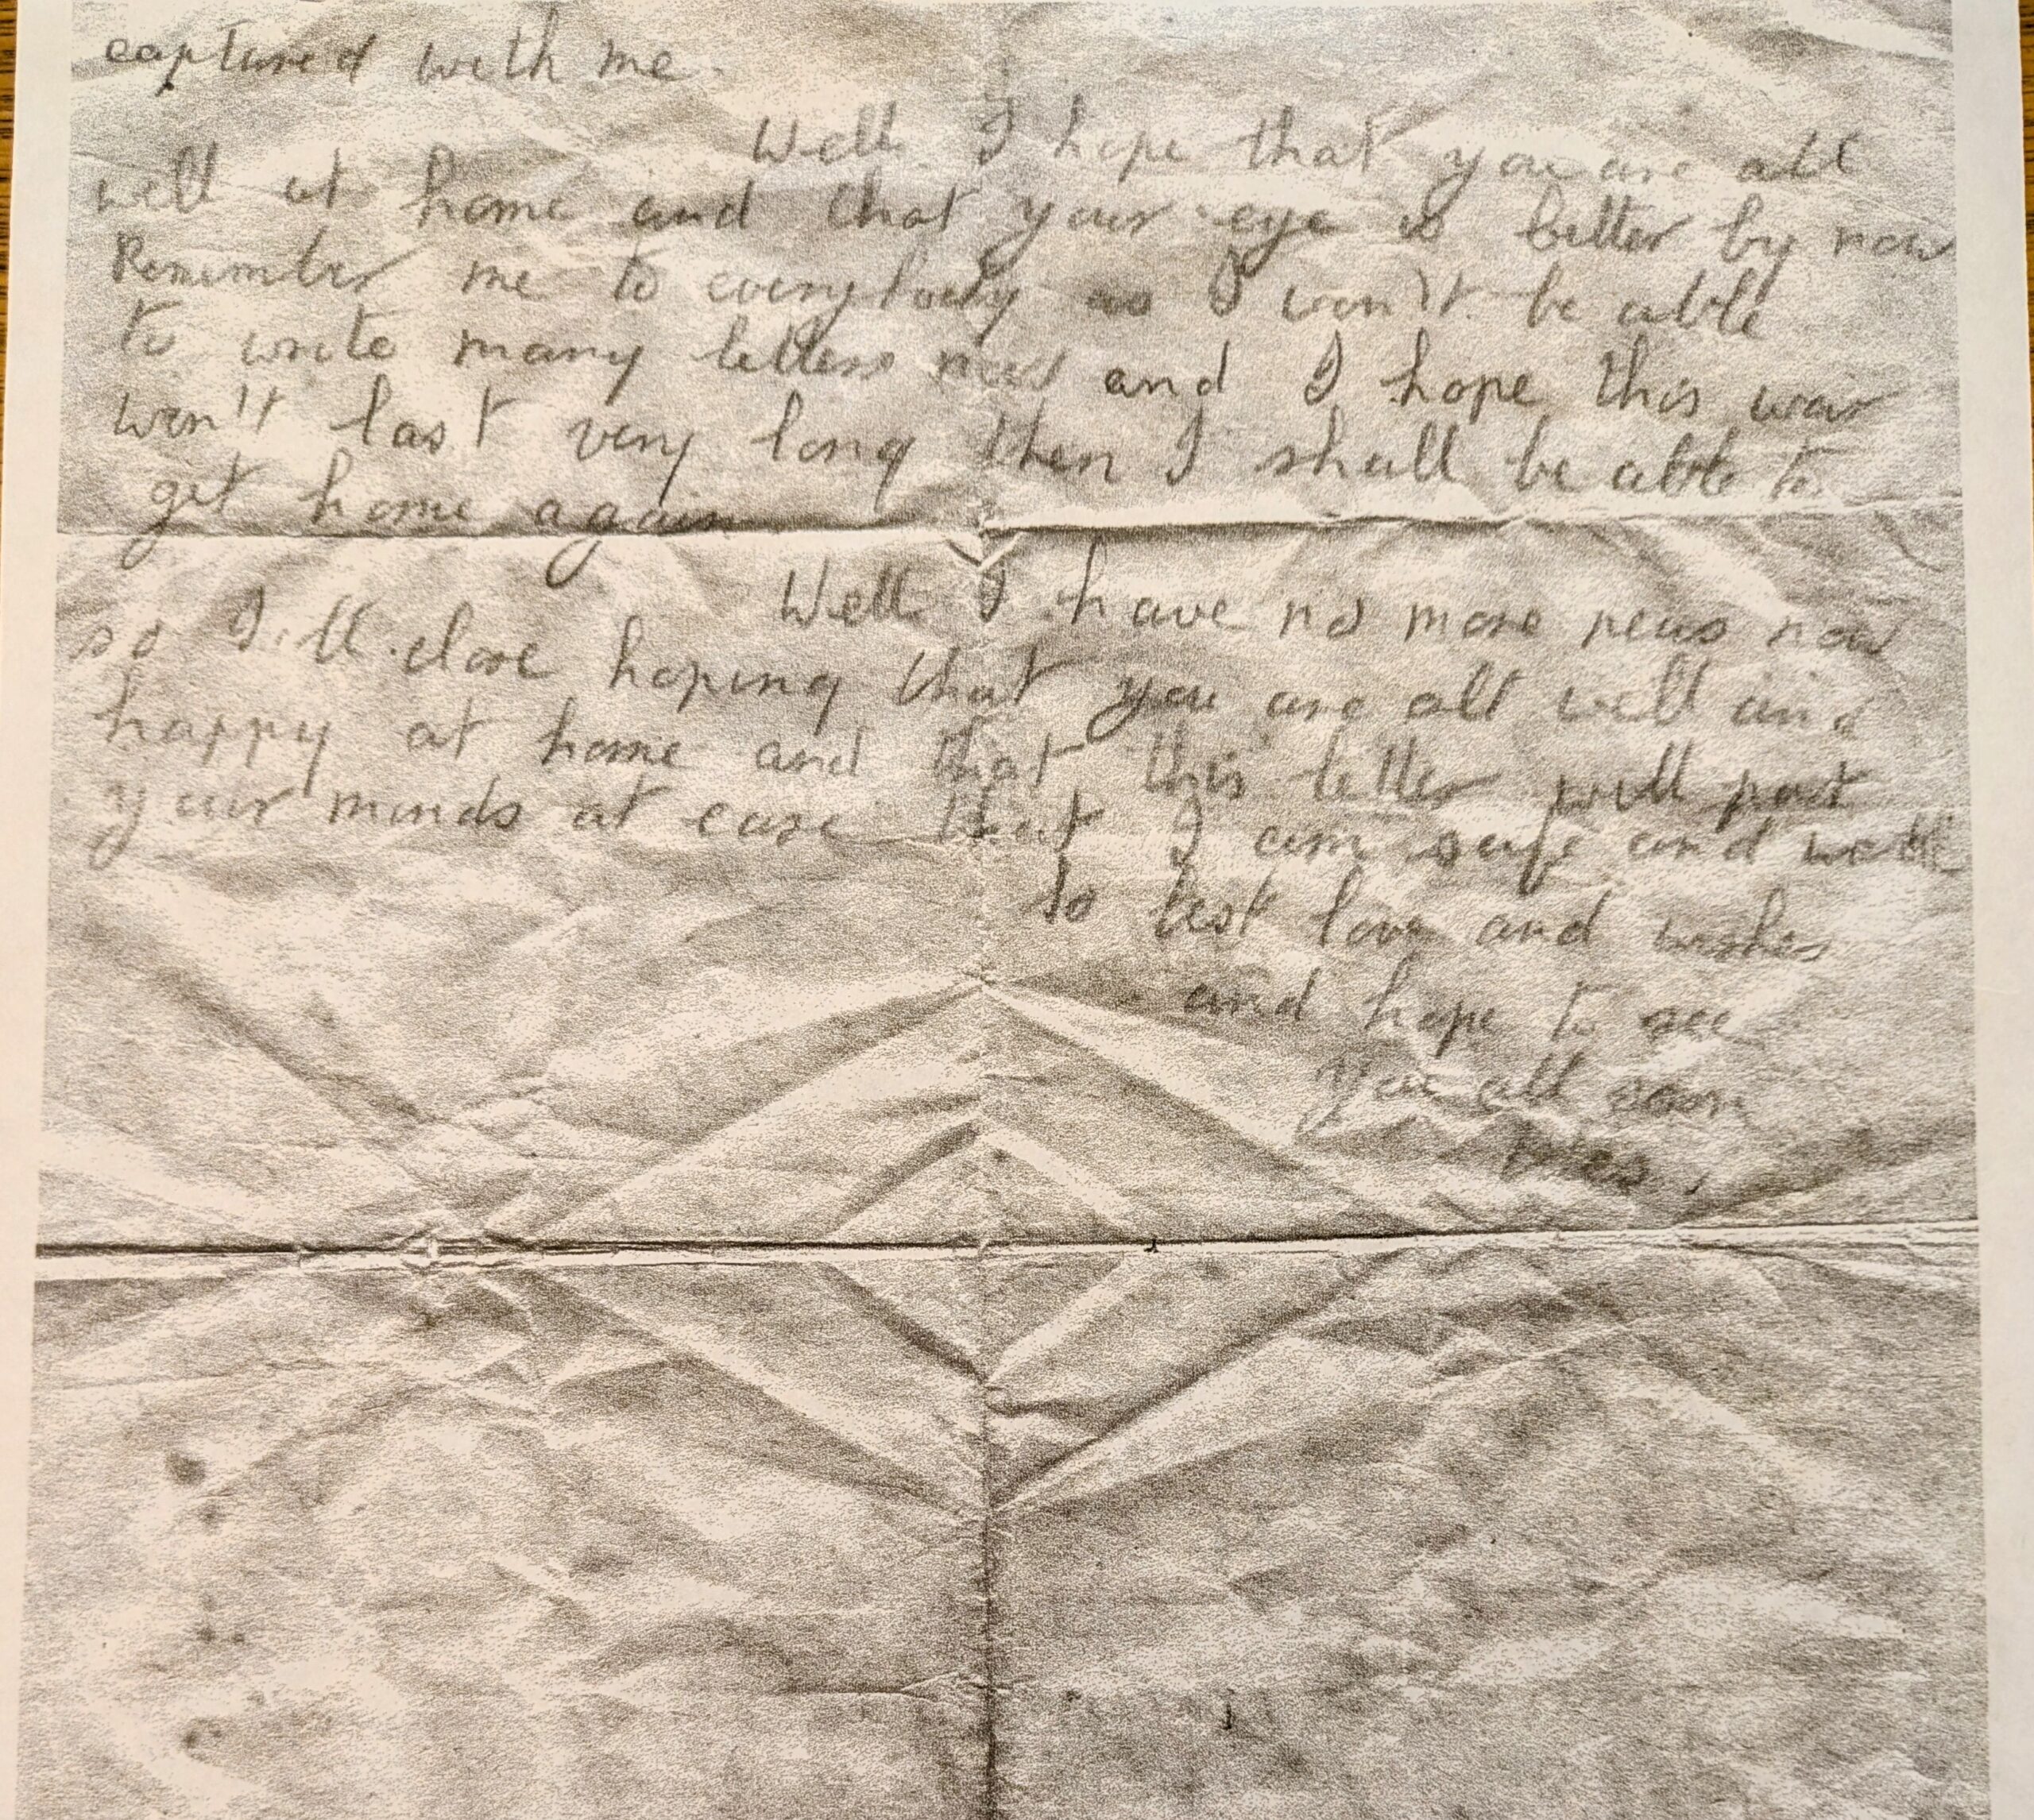 captured with me.
Well I hope that you are all
well at home and that your eye is better by now
Remember me to everybody as I won't be able
to write many letters now and I hope this war
won't last very long then I shall be able to
get home again
Well I have no more news now
so I'll close hoping that you are all well and
happy at home and that this letter will put
your minds at ease that I am safe and well
So best love and wishes
and hope to see
You all soon